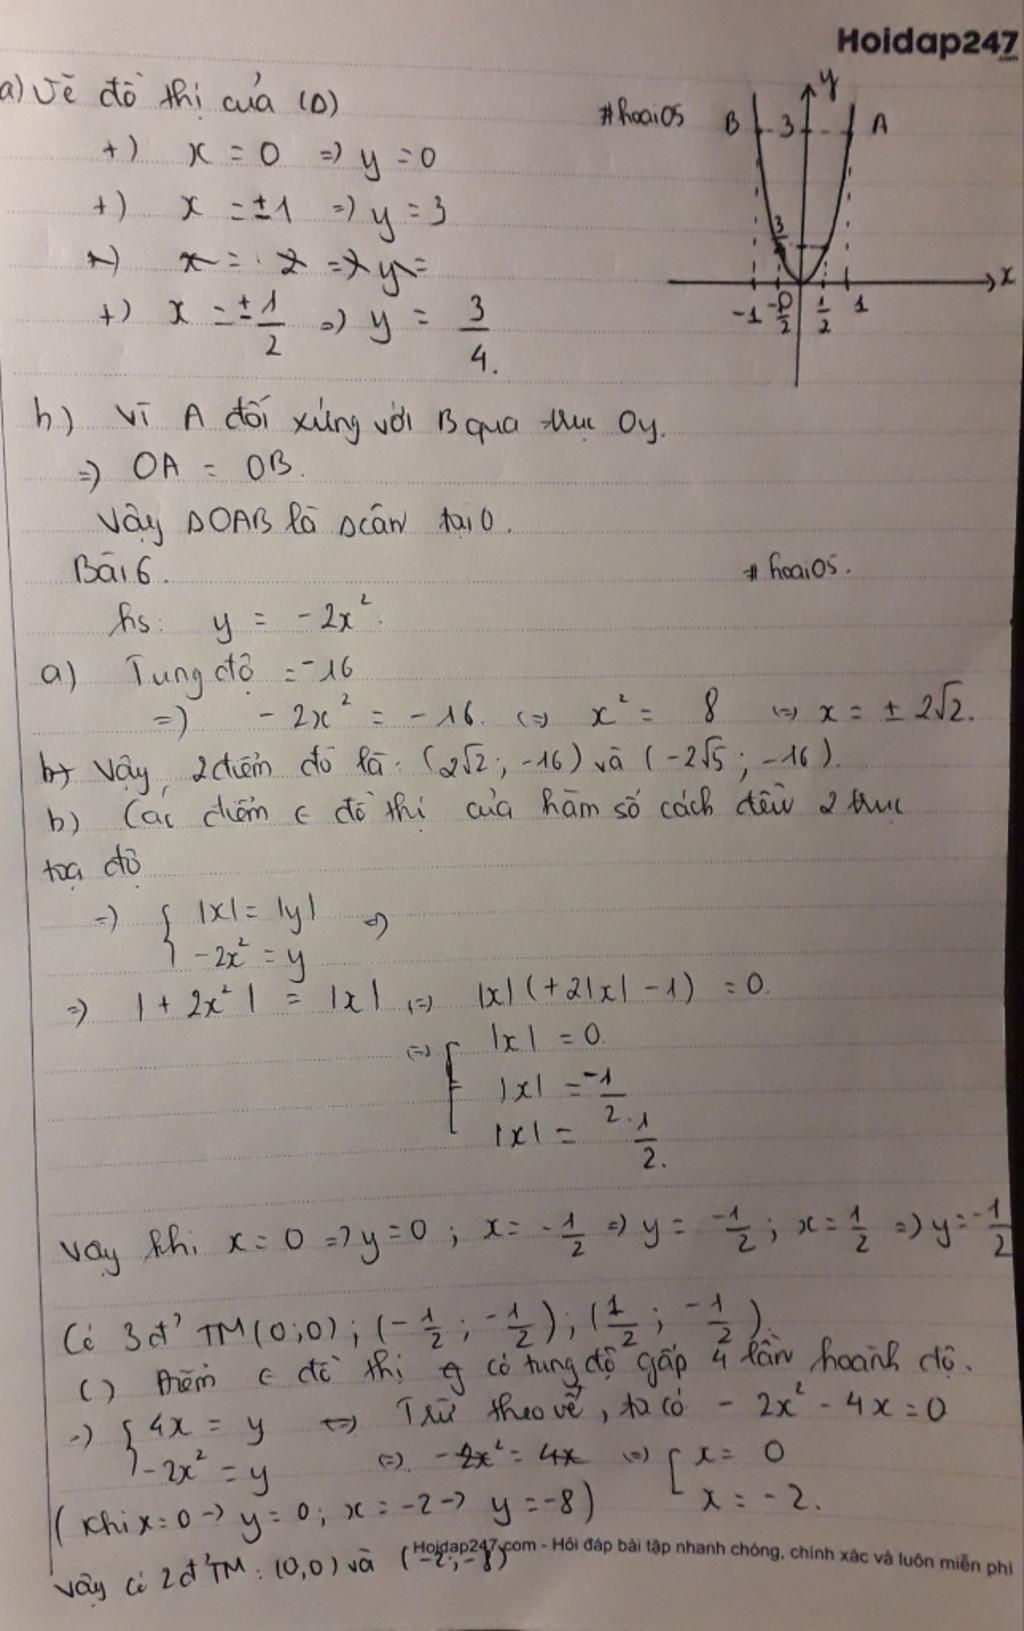 Hoidap247
.com
a) Vẽ đồ thị của (D)
#hoai05
+) x = 0 => y = 0
+) x = ±1 => y = 3
+) x = ±1/2 => y = 3/4.
y
B 3 A
3
x
-1 1/2 1
b) Vì A đối xứng với B qua trục Oy.
=> OA = OB.
Vậy ΔOAB là Δcân tại O.
Bài 6.
#hoai05.
hs: y = -2x².
a) Tung độ = -16
=> -2x² = -16. <=> x² = 8 <=> x = ± 2√2.
Vậy, 2 điểm đó là: (2√2; -16) và (-2√5; -16).
b) Các điểm ∈ đồ thị của hàm số cách đều 2 trục
toạ độ
=> { |x| = |y| =>
-2x² = y
=> |+2x²| = |x| <=> |x|(+2|x| - 1) = 0.
<=> [ |x| = 0.
|x| = -1/2.
|x| = 1/2.
Vậy khi x = 0 => y = 0; x = -1/2 => y = -1/2; x = 1/2 => y = -1/2
Có 3 đ' TM (0;0); (-1/2; -1/2); (1/2; -1/2).
c) Điểm ∈ đồ thị có tung độ gấp 4 lần hoành độ.
=> { 4x = y <=> Trừ theo vế, ta có -2x² - 4x = 0
-2x² = y <=> -2x² = 4x <=> [ x = 0
x = -2.
(Khi x = 0 -> y = 0; x = -2 -> y = -8)
Vậy có 2 đ' TM: (0,0) và (-2; -8)
Hoidap247.com - Hỏi đáp bài tập nhanh chóng, chính xác và luôn miễn phí